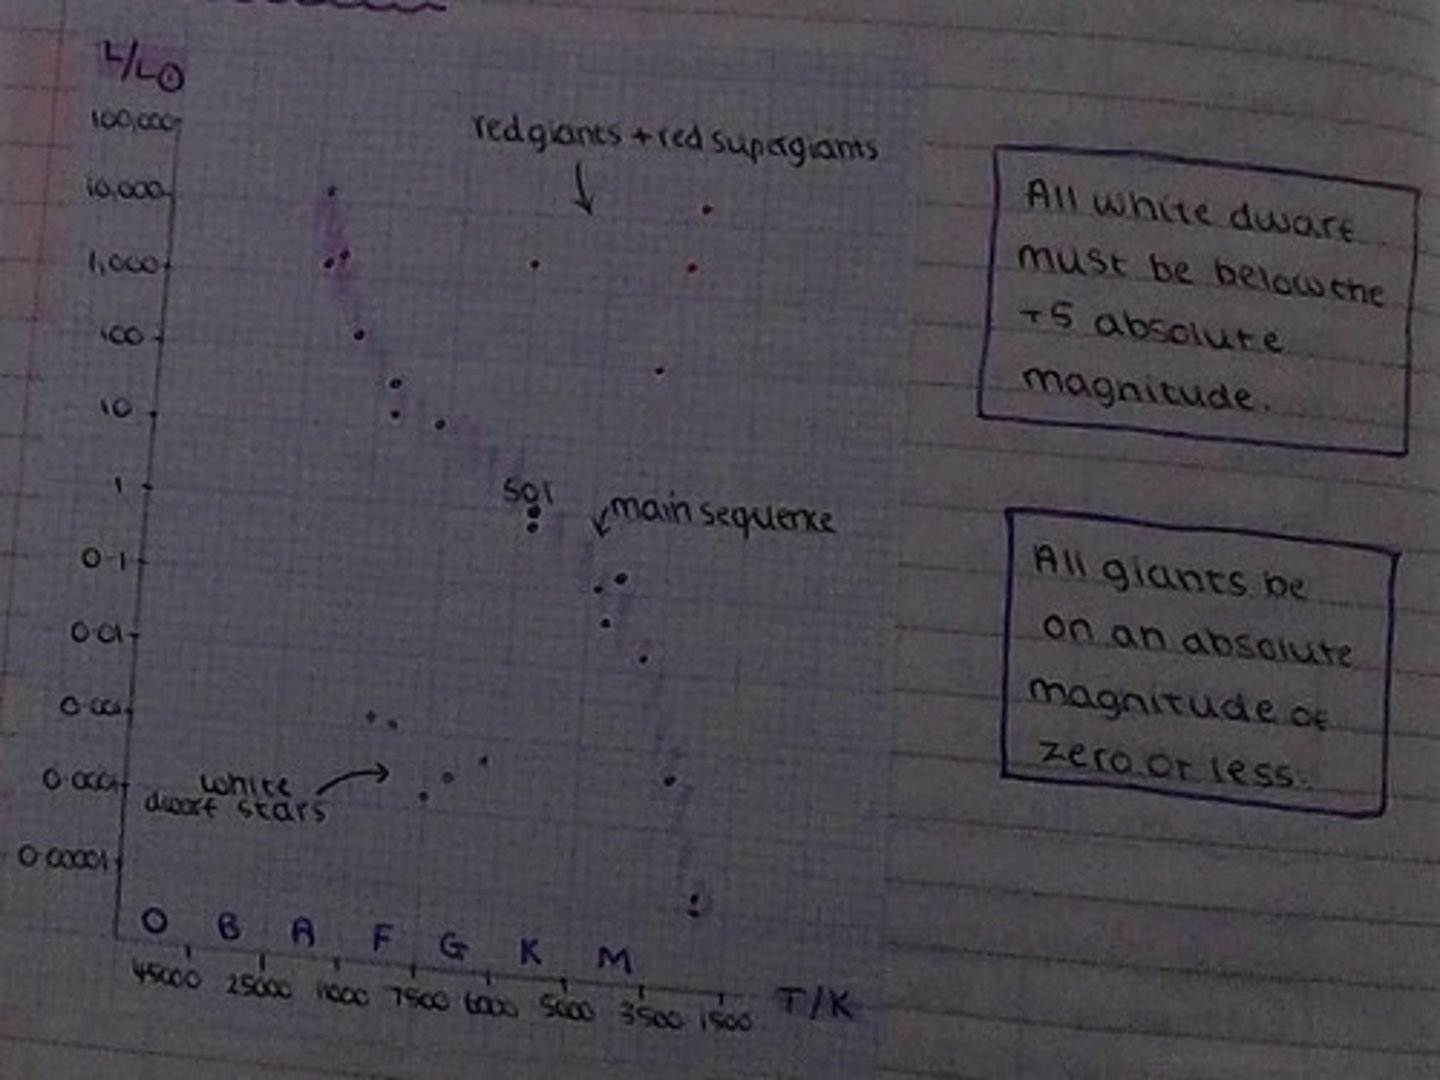 L/L⊙
100,000
red giants + red supergiants
10,000
1,000
100
10
1
sol
main sequence
0.1
0.01
0.001
0.0001
white
dwarf stars
0.00001
O B A F G K M
45000 25000 11000 7500 6000 5000 3500 1500 T/K
All white dwarf
must be below the
+5 absolute
magnitude.
All giants be
on an absolute
magnitude of
zero or less.